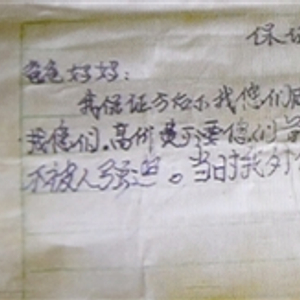 保证
爸爸妈妈：
我保证今后不找他们
找他们.高价费不要他们
不被人强迫。当时我